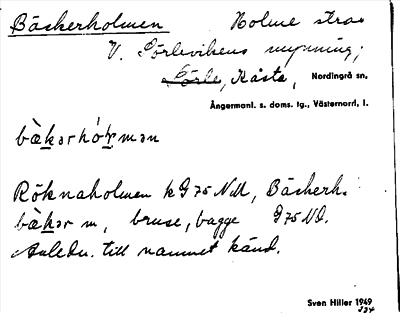 Bäskerholmen Holme strax
V. Sörlevikens mynning,
Sörle, Kåsta, Nordingrå sn,
Ångermanl. s. doms. tg., Västernorrl. l.
bæ̀kərhɷ́ɽmən
Röknaholmen k G 75 NM, Bäskerh.
bæ̀kər m, bruse, bagge G 75 NÖ.
Anledn. till namnet känd.
Sven Hiller 1949